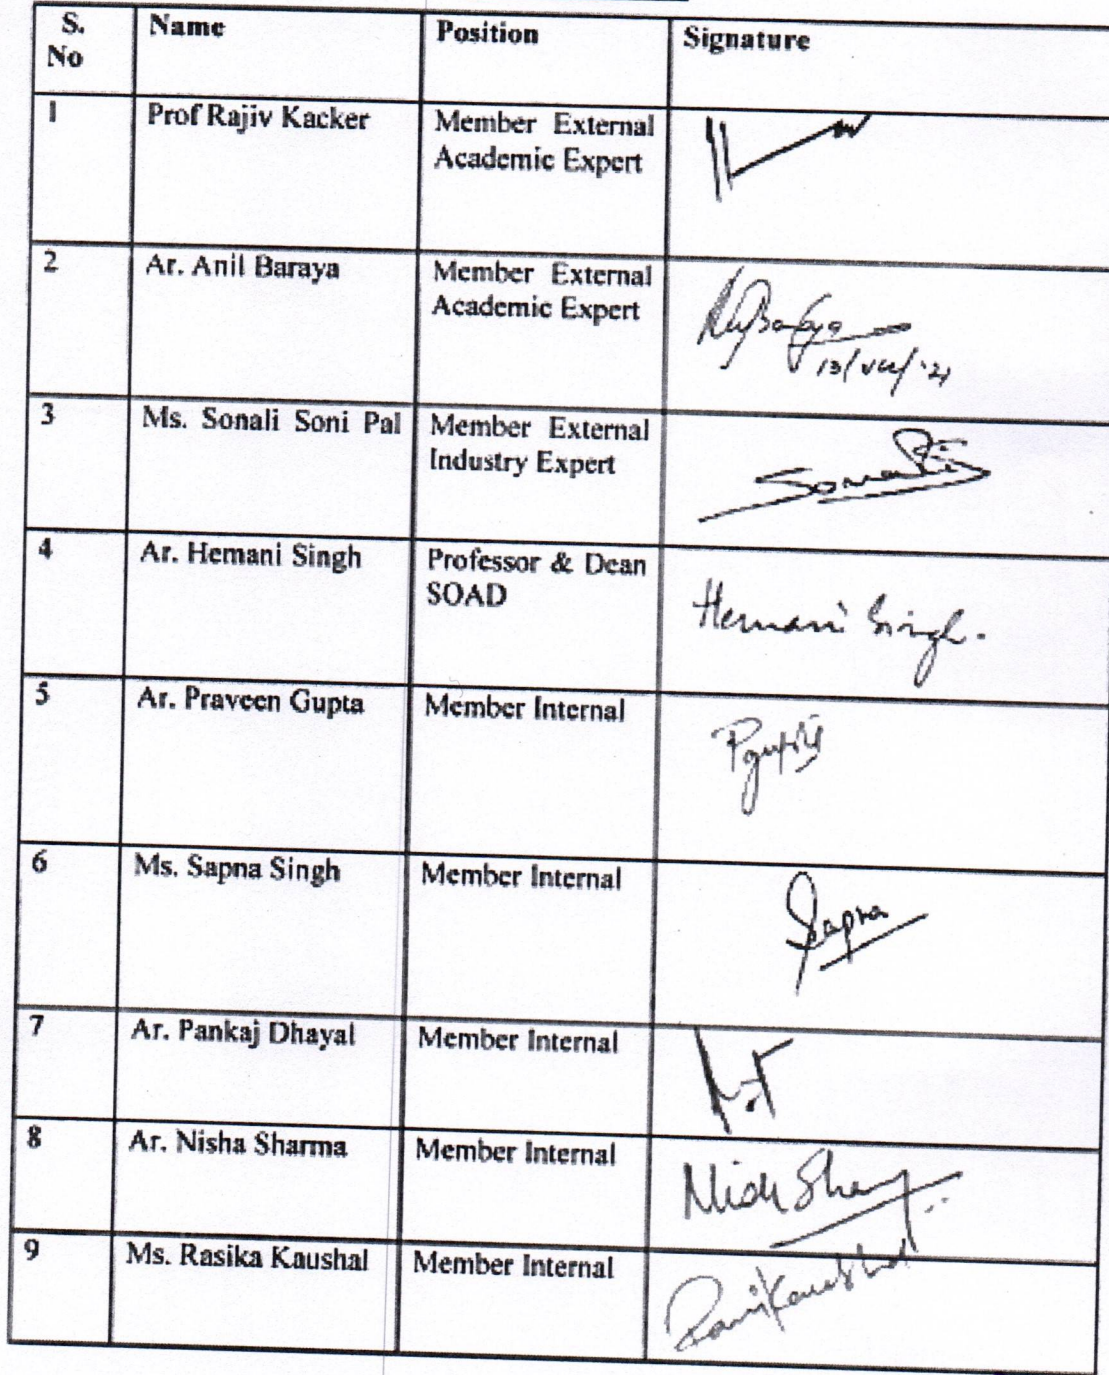 S. No
Name
Position
Signature
1
Prof Rajiv Kacker
Member External
Academic Expert
2
Ar. Anil Baraya
Member External
Academic Expert
3
Ms. Sonali Soni Pal
Member External
Industry Expert
Sonali
4
Ar. Hemani Singh
Professor & Dean
SOAD
Hemani Singh.
5
Ar. Praveen Gupta
Member Internal
6
Ms. Sapna Singh
Member Internal
Sapna
7
Ar. Pankaj Dhayal
Member Internal
8
Ar. Nisha Sharma
Member Internal
9
Ms. Rasika Kaushal
Member Internal